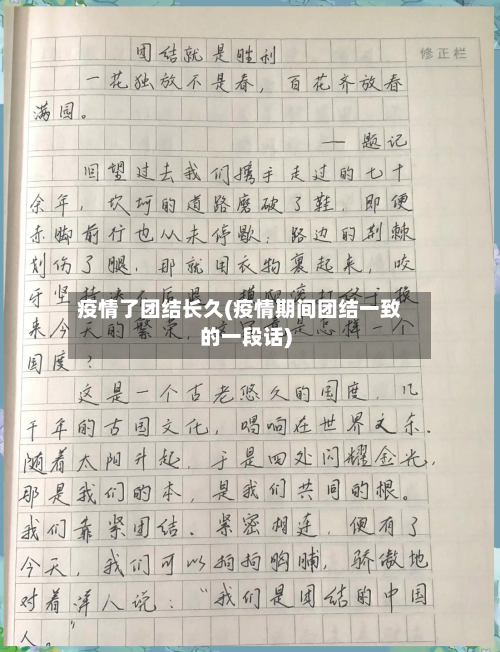 团结就是胜利
修正栏
一花独放不是春，百花齐放春
满园。
— 题记
回望过去我们携手走过的七十
余年，坎坷的道路磨破了鞋，即便
赤脚前行也从未停歇；路边的荆棘
划伤了腿，那就用衣物裹起来，咬
牙坚
疫情了团结长久(疫情期间团结一致
的一段话)
来今天的繁荣，
怎样一个
国度？
这是一个古老悠久的国度，几
千年的古国文化，唱响在世界文东.
随着太阳升起，于是四处闪耀金光，
那是我们的本，是我们共同的根。
我们靠紧团结、紧密相连，便有了
今天，我们可以拍拍胸脯，骄傲地
对着洋人说：“我们是团结的中国
人。”